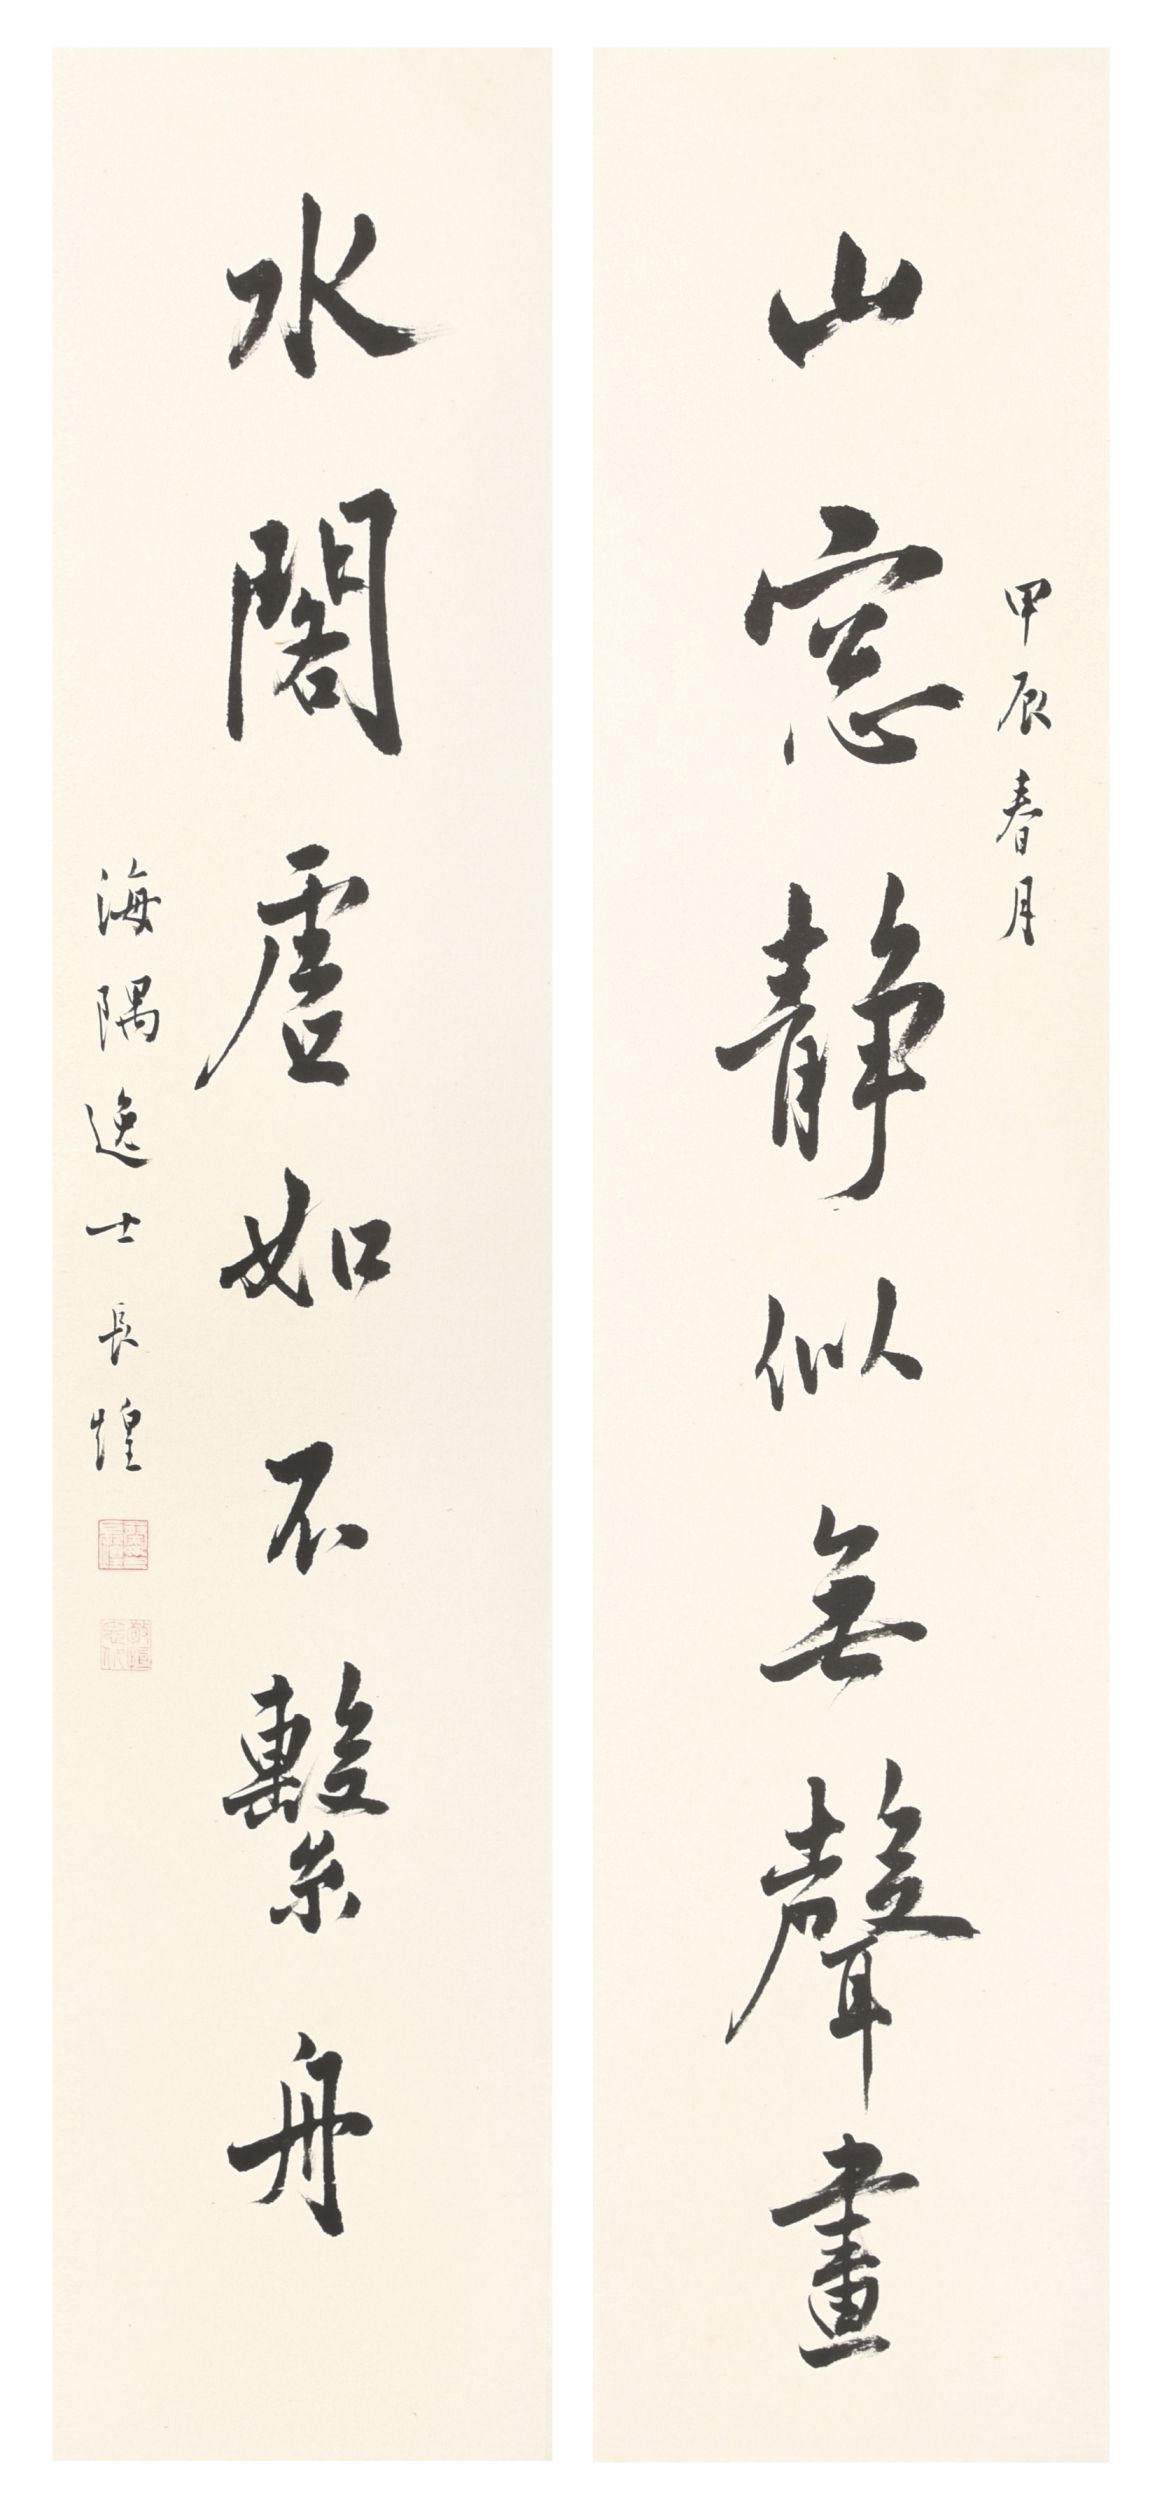 甲辰春月
山窓靜似無聲畫
水閣虛如不繫舟
海隅逸士長煌